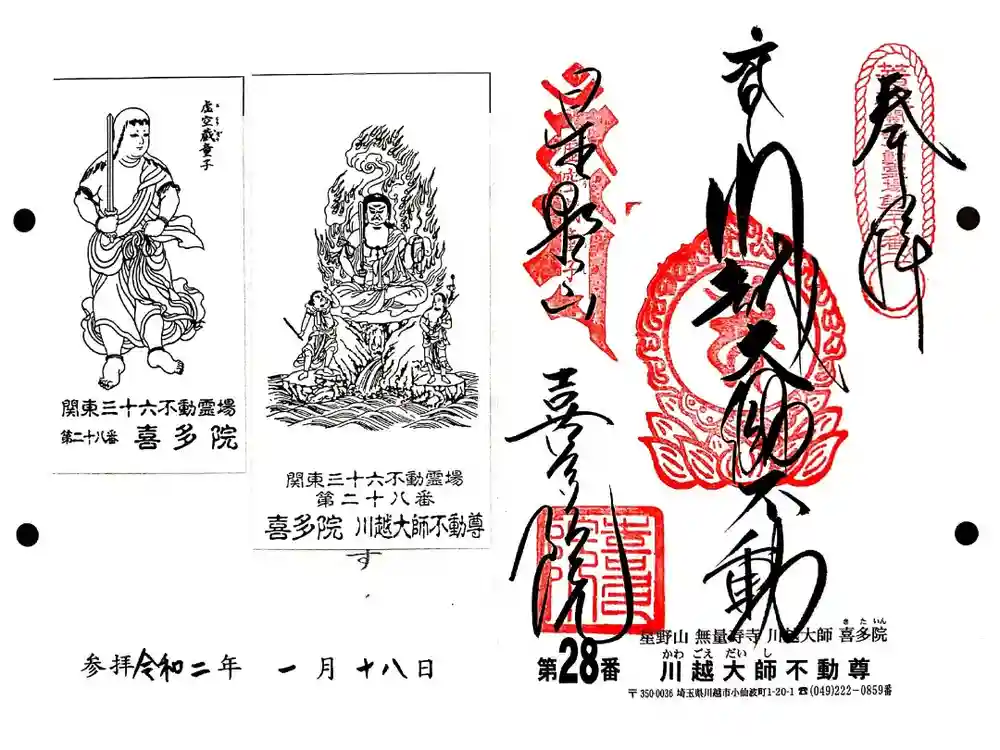 奉拝
川越大師不動
喜多院
虚空蔵童子
関東三十六不動霊場
第二十八番 喜多院
関東三十六不動霊場
第二十八番
喜多院 川越大師不動尊
す
参拝令和二年 一月十八日
星野山 無量寿寺 川越大師 喜多院
きたいん
第28番 川越大師不動尊
かわごえだいし
〒350-0036 埼玉県川越市小仙波町1-20-1 ☎(049)222-0859番